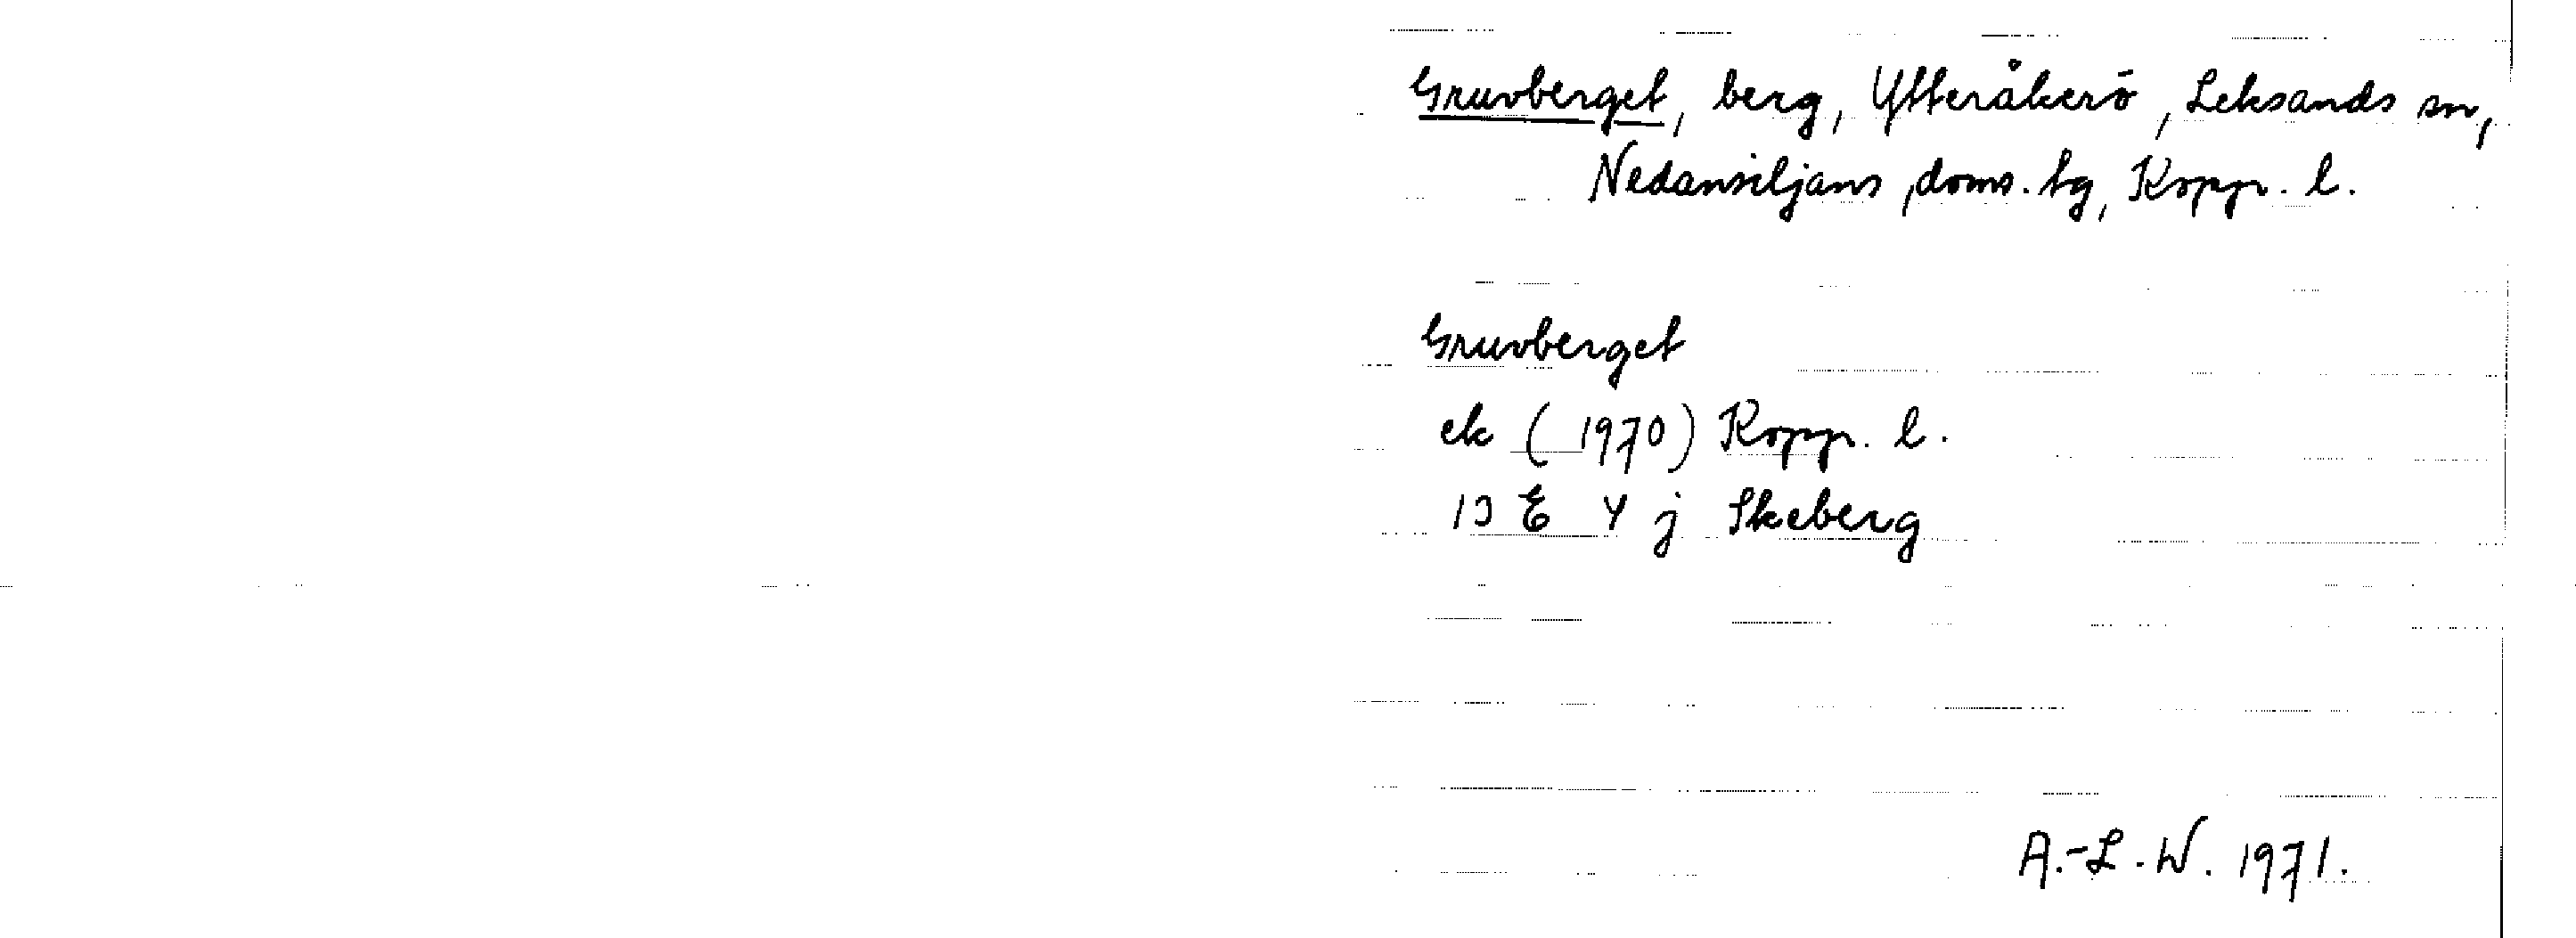 Gruvberget, berg, Ytteråkerö, Leksands sn,
Nedansiljans doms. tg, Kopp. l.
Gruvberget
ek (1970) Kopp. l.
13 E 4 j Skeberg
A.-L. W. 1971.